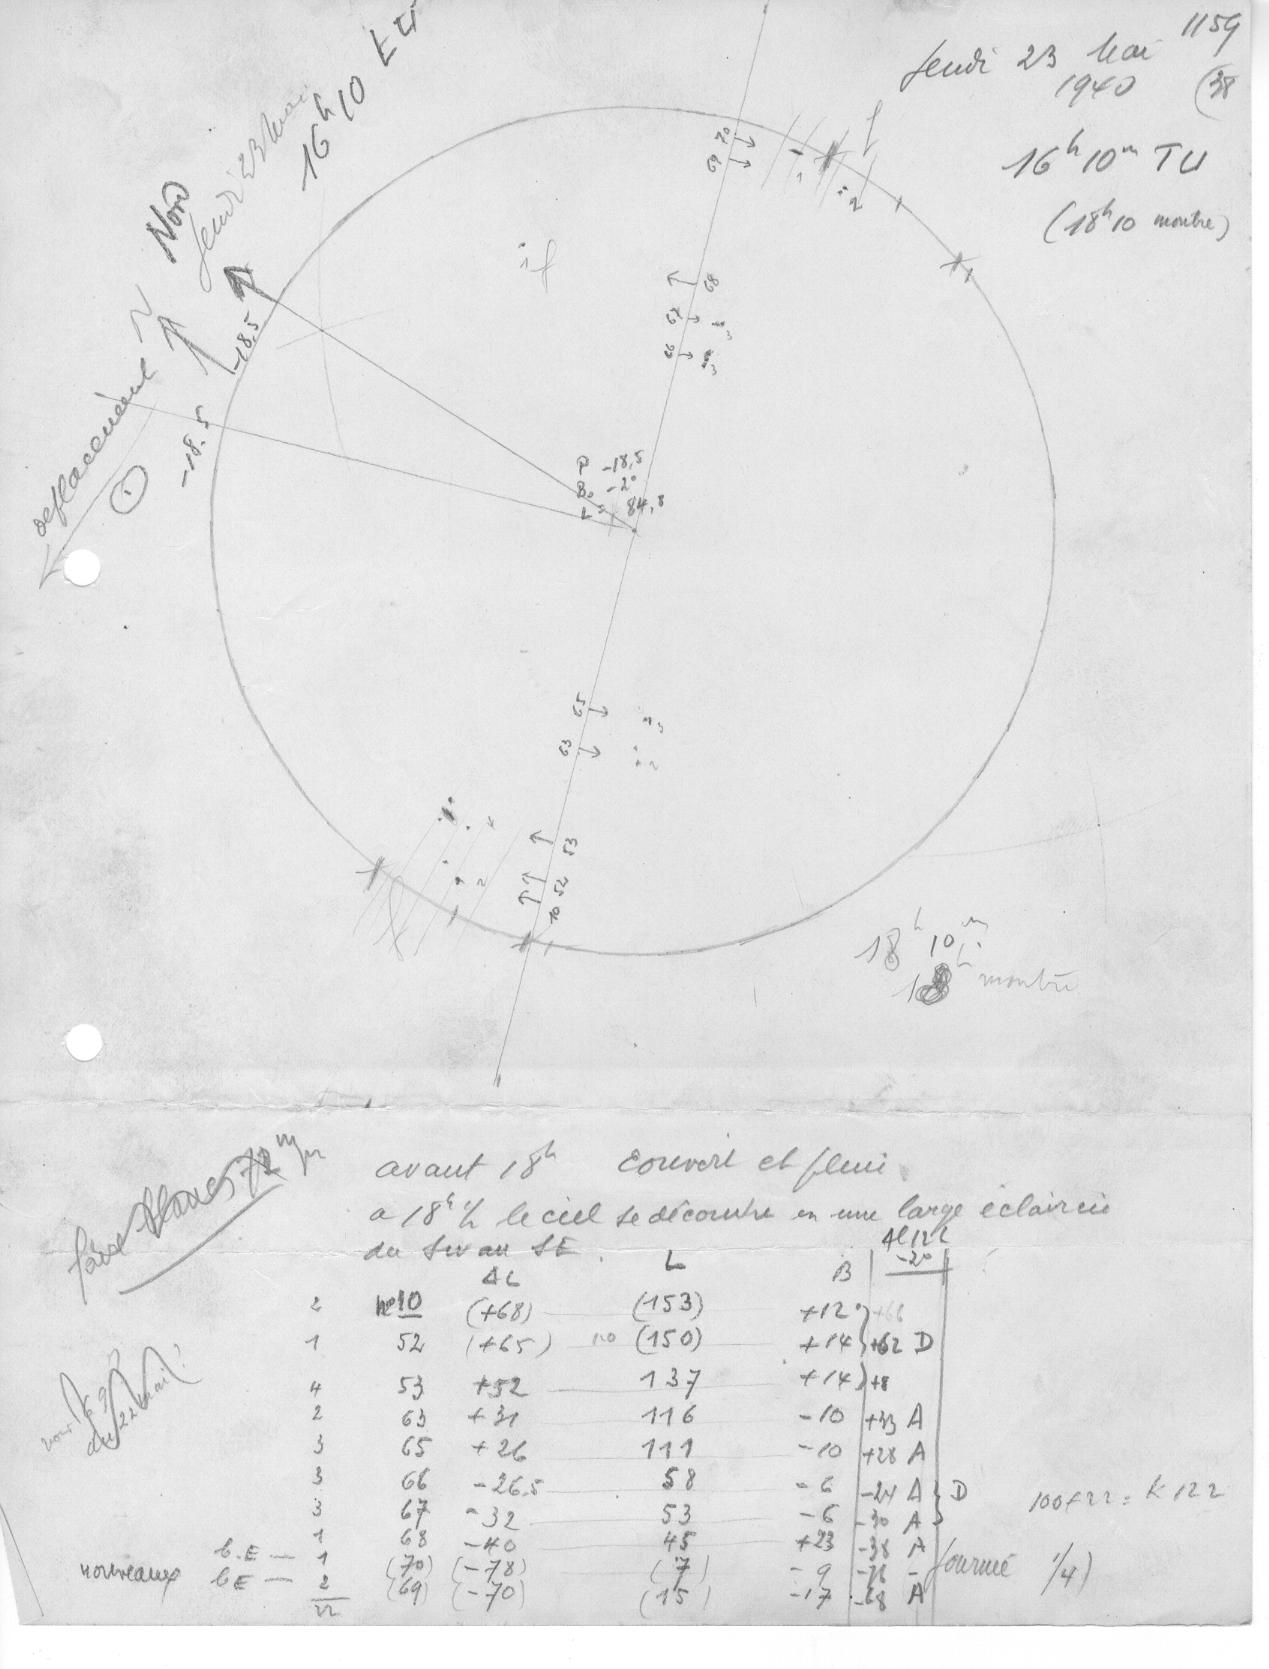 1159
Jeudi 23 Mai
1940 (38
16h 10m TU
(18h10 montre)
16h 10
Jeudi 23 Mai
Nord
N
-18,5
déplacement
1
-18.5
P -18,5
B0 -2°
L = 84,8
70
69
f
1
2
f
68
67 3
66 3
65 3
63 2
4
2
53
52
10
f
18h 10m
18h montre
faire 
avant 18h couvert et pluie
a 18h le ciel se découvre en une large éclaircie
du Sur au SE.
ΔL L B -2°
2 n°10 (+68) (153) +12°) +66
1 52 (+65) 110 (150) +14) +62 D
4 53 +52 137 +14)
2 63 +31 116 -10 +33 A
3 65 +26 111 -10 +28 A
3 66 -26.5 58 -6 -24 A } D
3 67 -32 53 -6 -30 A
100+22 = K 122
1 68 -40 45 +23 -38 A
b.E — 1 (70) (-78) (7) -9 -76 -
nouveaux bE — 2 (69) (-70) (15) -17 -68 A
22
1/4)
du 22 mai!